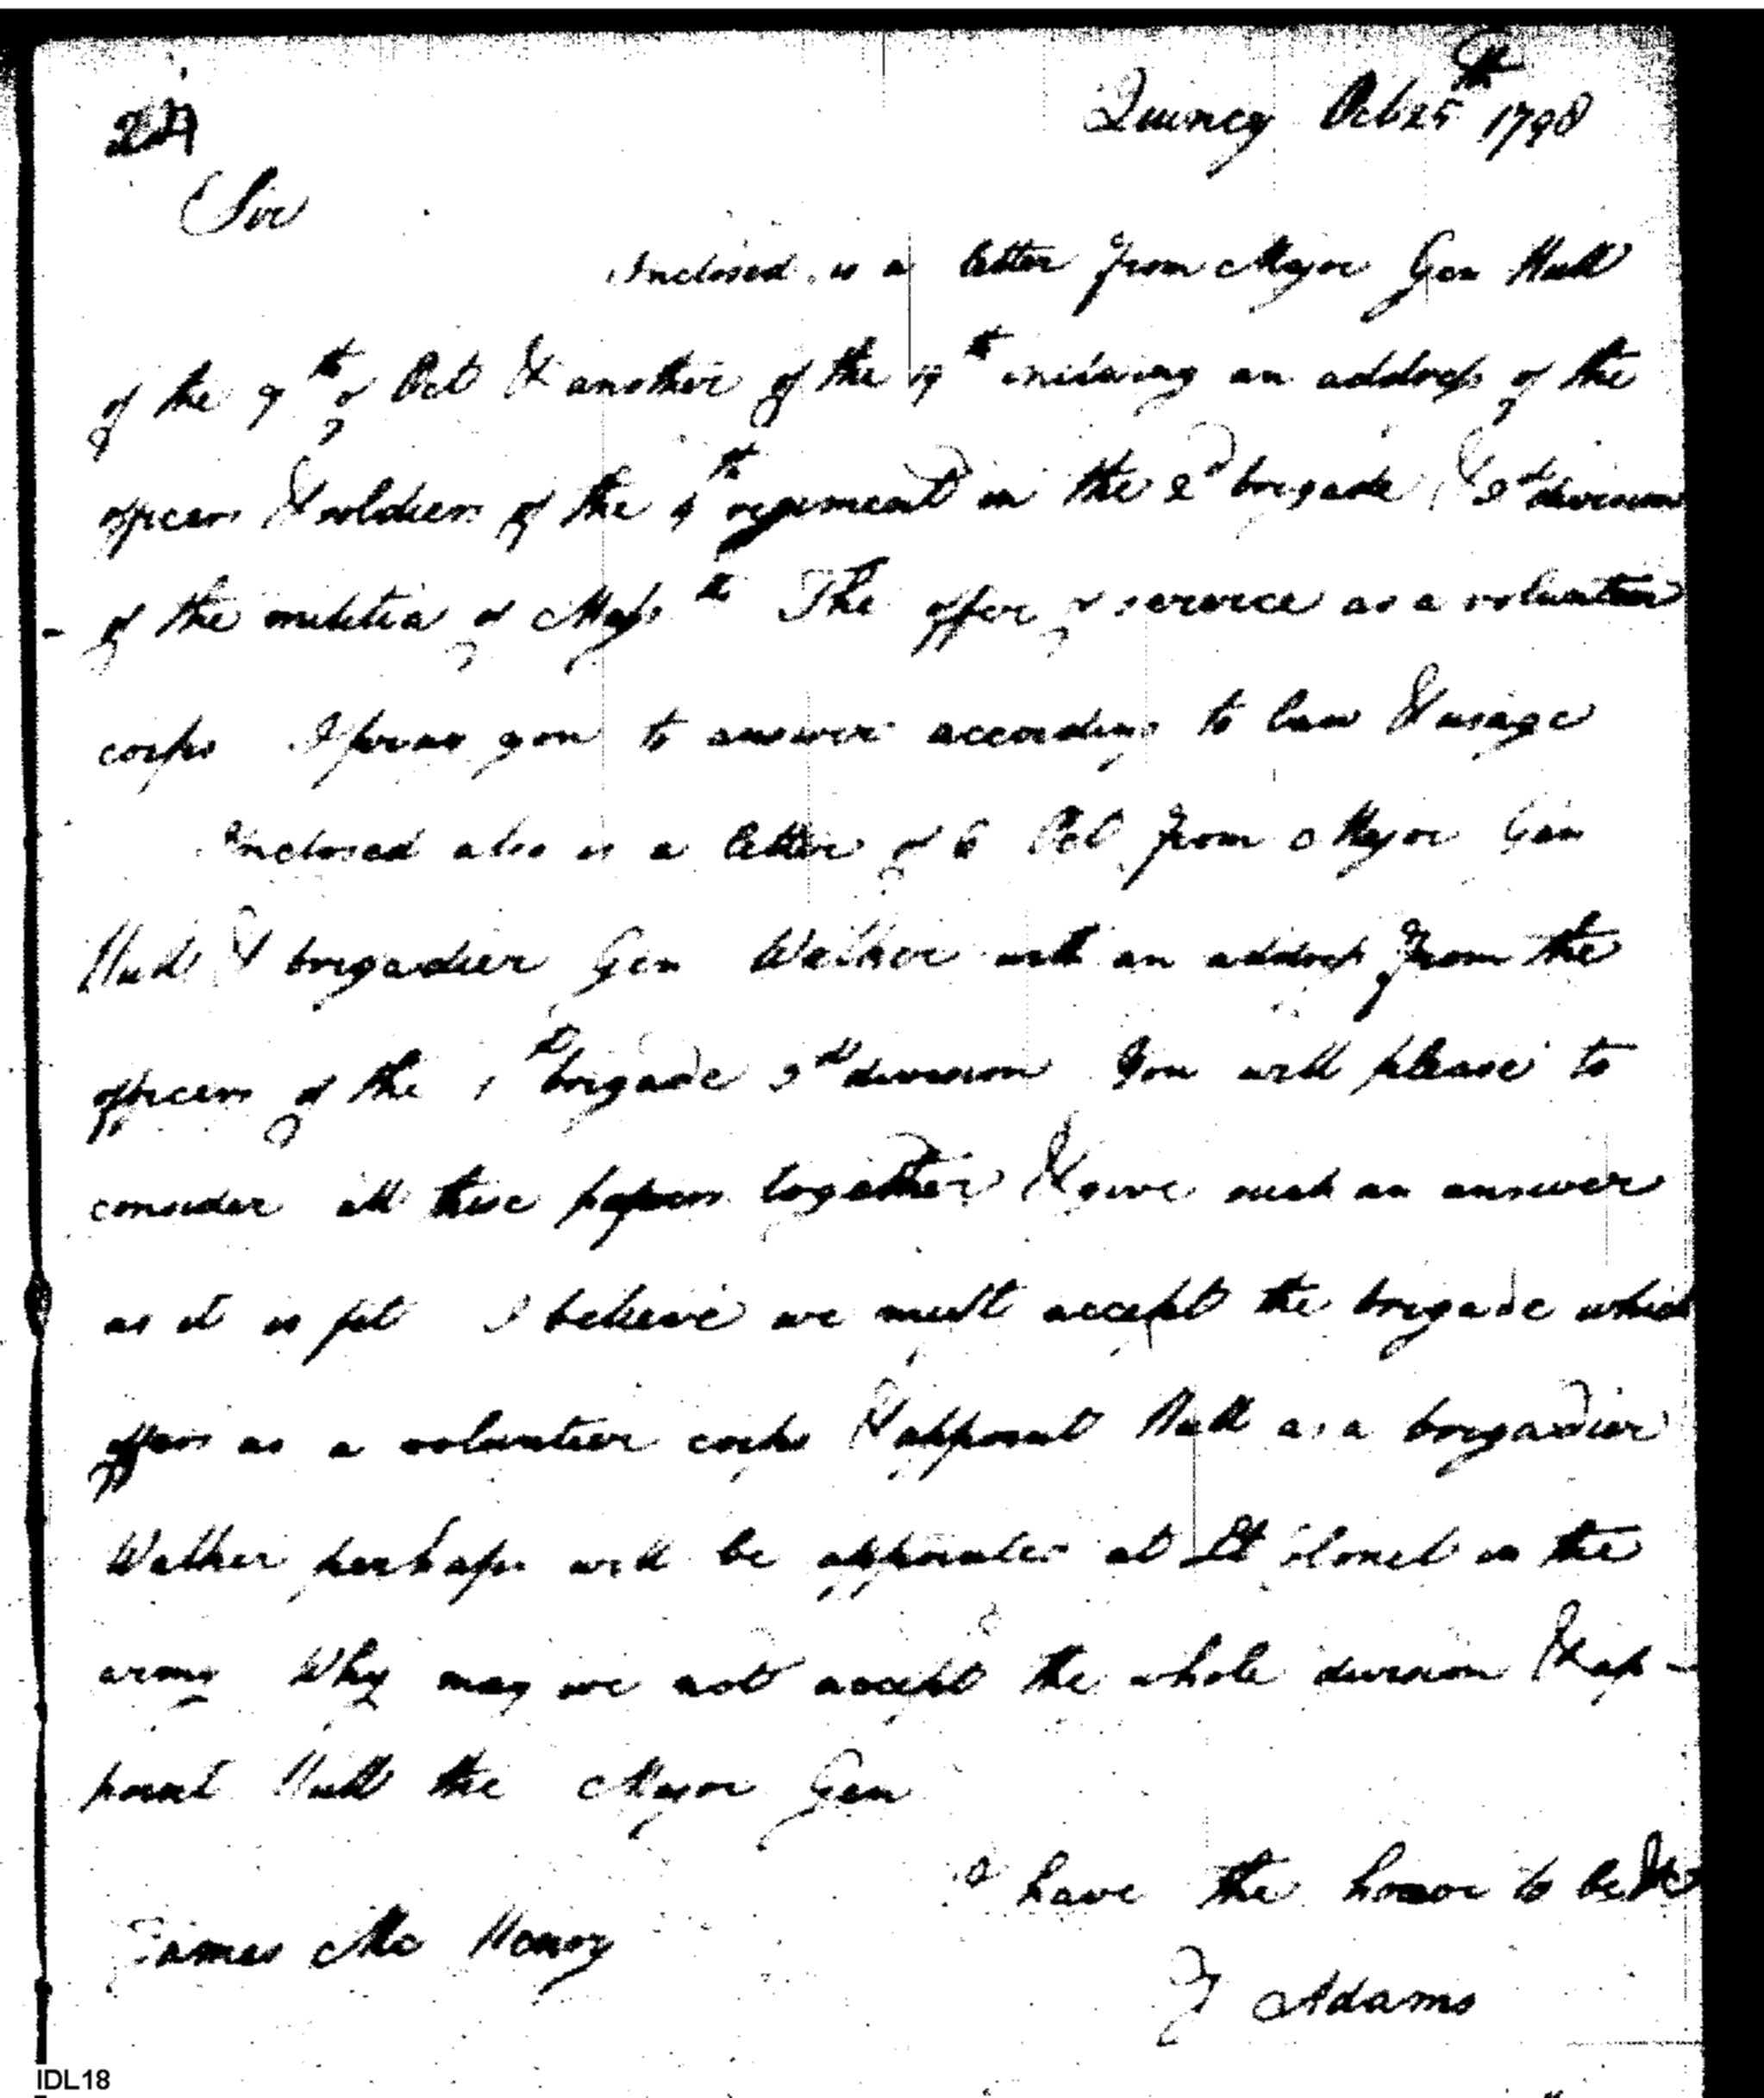 24
Quincy Oct 25th 1798
Sir
Inclosed is a letter from Major Gen Hull
of the 9th of Oct & another of the 19th inclosing an address of the
officers & soldiers of the 4th regiment in the 2d brigade & 3d division
of the militia of Mass tts The offer of service as a volunteer
corps I pray you to answer according to law & usage
Inclosed also is a letter of 6 Oct from Major Gen
Hull & brigadier Gen Walker with an address from the
officers of the 1st brigade 3d division You will please to
consider all these papers together & give such an answer
as it is fit I believe we must accept the brigade which
offers as a volunteer corps & appoint Hull as a brigadier
Walker perhaps will be appointed at Lt colonel in the
army Why may we not accept the whole division & ap-
point Hull the Major Gen
I have the honor to be &c
James Mc Henry
J Adams
IDL18